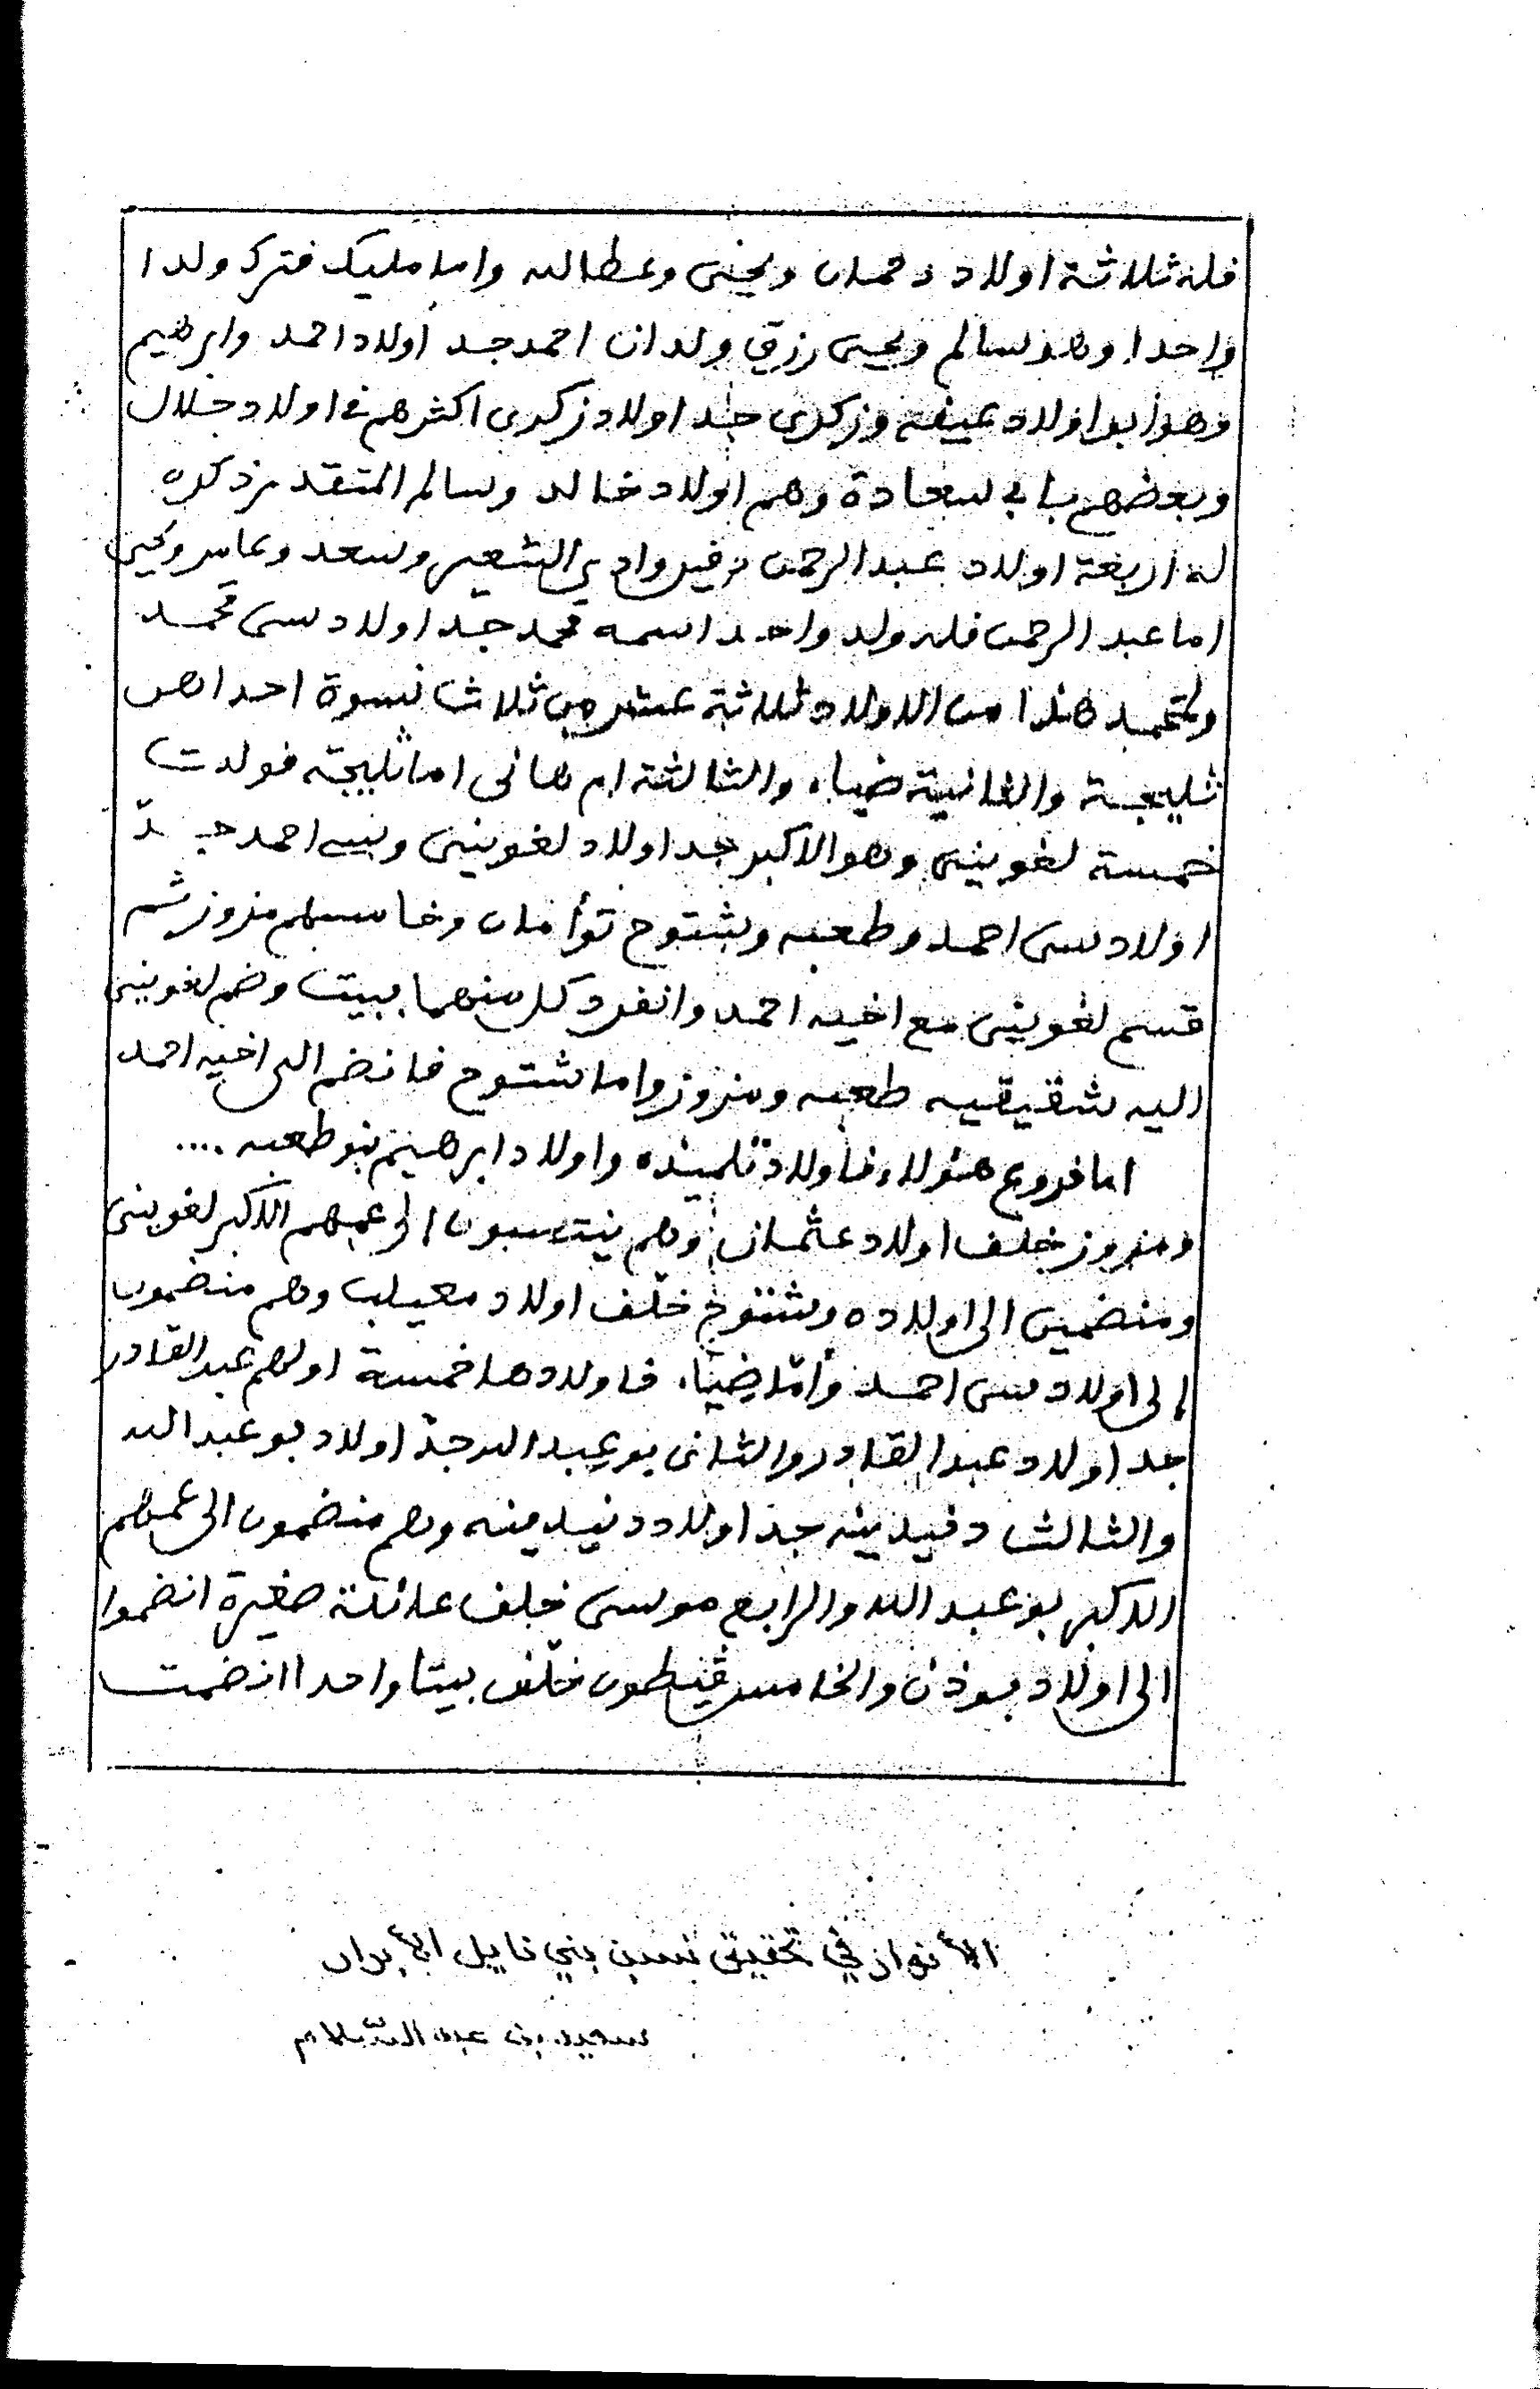 فله ثلاثة اولاد دحمان ويحيى وعطالله واما مليك فترك ولدا
واحدا وهو سالم ويحيى رزق ولدان احمد جد اولاد احمد وابرهيم
وهو ابو اولاد عيفه وزكرى جد اولاد زكرى اكثرهم فى اولاد جلال
وبعضهم بابي سعادة وهم اولاد خالد وسالم المتقدم ذكره
له اربعة اولاد عبد الرحمن دفين وادي الشعير وسعد وعامر ويحيى
اما عبد الرحمن فله ولد واحد اسمه محمد جد اولاد سى محمد
ولمحمد هذا من الاولاد ثلاثة عشر من ثلاث نسوة احداهن
ثليجة والثانية ضياء والثالثة ام هانى اما ثليجة فولدت
خمسة لغوينى وهو الاكبر جد اولاد لغوينى وسى احمد جدّ
اولاد سى احمد وطعبه وشتوح توأمان وخامسهم مزوز ثم
قسم لغوينى مع اخيه احمد وانفرد كل منهما ببيت وضم لغوينى
اليه شقيقيه طعبه ومزوز واما شتوح فانضم الى اخيه احمد
اما فروع هئولاء فأولاد تلميذه واولاد ابرهيم بنو طعبه ....
ومزوز خلف اولاد عثمان وهم ينتسبون الى عمهم الاكبر لغوينى
ومنضمين الى اولاده وشتوح خلّف اولاد معيلب وهم منضمون
إلى اولاد سى احمد وأمّا ضياء فاولادها خمسة اولهم عبد القادر
جد اولاد عبد القادر والثانى بوعبد الله جدّ اولاد بوعبد الله
والثالث دنيدينه جد اولاد دنيدينه وهم منضمون الى عمهم
الاكبر بوعبد الله والرابع موسى خلف عائلة صغيرة انضموا
الى اولاد بوذن والخامس قيطون خلّف بيتا واحدا انضمت
الأنوار في تحقيق نسب بني نايل الأبرار
سعيد بن عبد السّلام